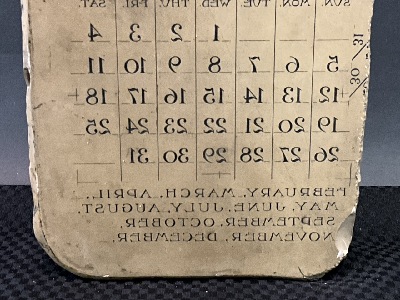 SUN. MON. TUE. WED. THU. FRI. SAT.
1 2 3 4
5 6 7 8 9 10 11
12 13 14 15 16 17 18
19 20 21 22 23 24 25
26 27 28 29 30 31
30/31
FEBRUARY, MARCH, APRIL,
MAY, JUNE, JULY, AUGUST,
SEPTEMBER, OCTOBER,
NOVEMBER, DECEMBER,